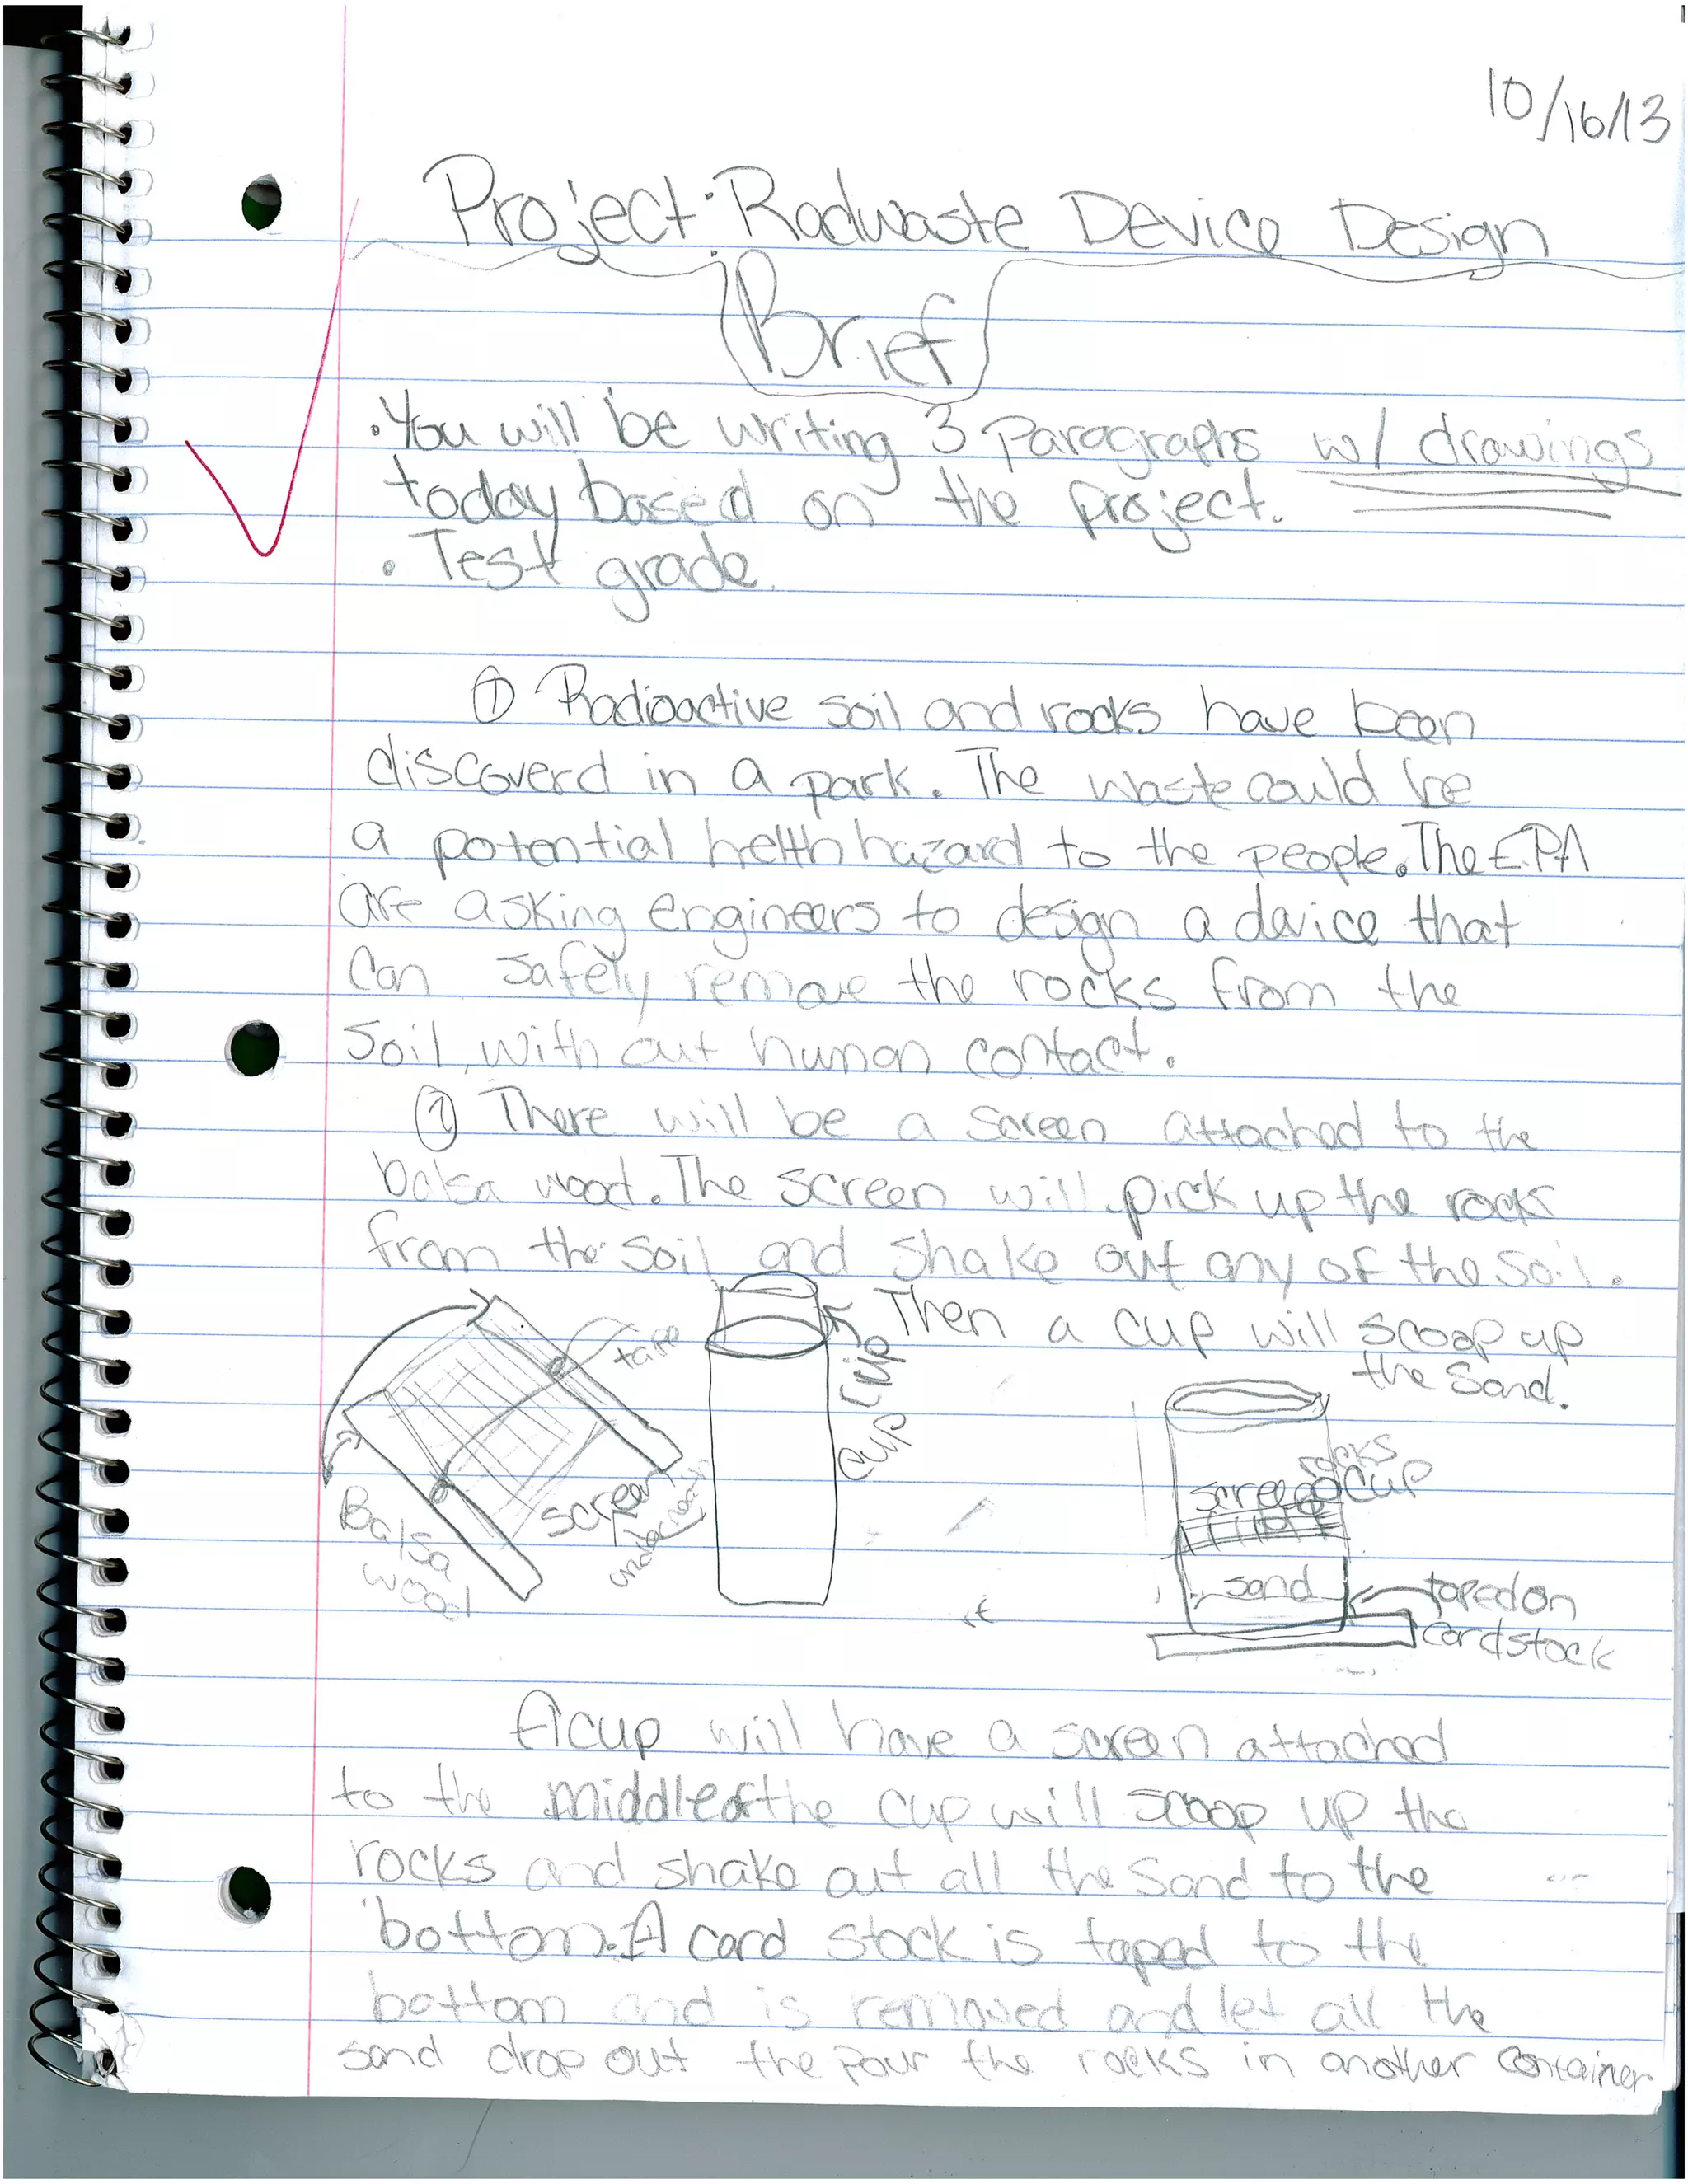 10/16/13
Project: Radwaste Device Design
Brief
• You will be writing 3 Paragraphs w/ drawings
today based on the project.
• Test grade.
① Radioactive soil and rocks have been
discoverd in a park. The waste could be
a potential helth hazard to the people. The EPA
are asking engineers to design a davice that
can safely remove the rocks from the
soil, with out human contact.
② There will be a screen attached to the
balsa wood. The screen will pick up the rocks
from the soil and shake out any of the soil.
Then a cup will scoop up
the sand.
tape
Balsa
wood
screen
underneath
Cup
rocks
screen
Cup
sand
taped on
cardstock
A cup will have a screen attached
to the middle of the cup will scoop up the
rocks and shake out all the sand to the
bottom. A card stock is taped to the
bottom and is removed and let all the
sand drop out the pour the rocks in another container